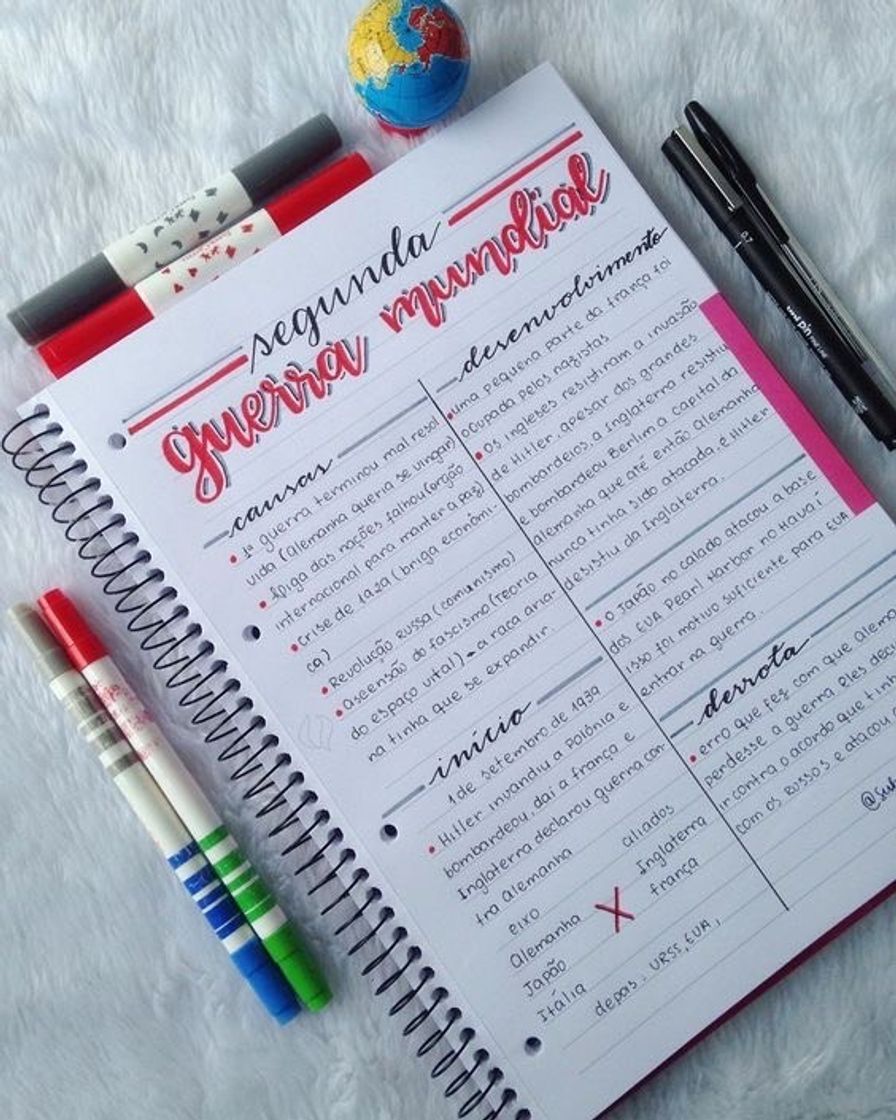 segunda
guerra mundial
causas
• 1ª guerra terminou mal resol
vida (Alemanha queria se vingar)
• Aliga das nações falhou (orgão
internacional para manter a paz)
• Crise de 1929 (briga econômi-
ca)
• Revolução Russa (comunismo)
• Ascensão do fascismo (Teoria
do espaço vital) → a raça aria-
na tinha que se expandir.
início
1 de setembro de 1939
• Hitler invandiu a Polônia e
bombardeou, daí a frança e
Inglaterra declarou guerra con-
tra Alemanha
eixo
aliados
Alemanha X Inglaterra
Japão
frança
Itália
depois: URSS, EUA,
desenvolvimento
• uma pequena parte da frança foi
ocupada pelos nazistas
• Os ingleses resistiram a invasão
de Hitler, apesar dos grandes
bombardeios, a Inglaterra resistiu
e bombardeou Berlim a capital da
alemanha que até então Alemanha
nunca tinha sido atacada, e Hitler
desistiu da Inglaterra.
• O Japão no calado atacou a base
dos EUA Pearl Harbor no Havaí
isso foi motivo suficiente para EUA
entrar na guerra.
derrota
• erro que fez com que Alem
perdesse a guerra Eles deci
ir contra o acordo que tin
com os Russos e atacou
0.7
pin